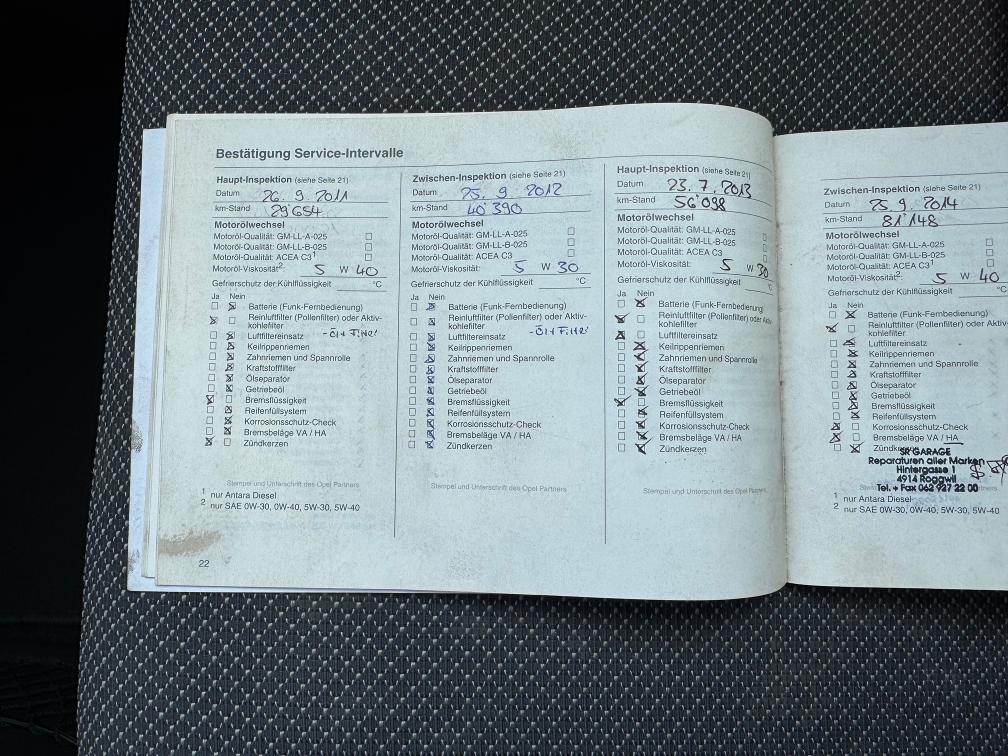 Bestätigung Service-Intervalle
Haupt-Inspektion (siehe Seite 21)
Datum 26. 9. 2011
km-Stand 29'654
Motorölwechsel
Motoröl-Qualität: GM-LL-A-025
Motoröl-Qualität: GM-LL-B-025
Motoröl-Qualität: ACEA C3¹
Motoröl-Viskosität²: 5 W 40
Gefrierschutz der Kühlflüssigkeit °C
Ja Nein
Batterie (Funk-Fernbedienung)
Reinluftfilter (Pollenfilter) oder Aktiv-
kohlefilter
Luftfiltereinsatz - Öl + Filter
Keilrippenriemen
Zahnriemen und Spannrolle
Kraftstofffilter
Ölseparator
Getriebeöl
Bremsflüssigkeit
Reifenfüllsystem
Korrosionsschutz-Check
Bremsbeläge VA / HA
Zündkerzen
Stempel und Unterschrift des Opel Partners
1 nur Antara Diesel
2 nur SAE 0W-30, 0W-40, 5W-30, 5W-40
22
Zwischen-Inspektion (siehe Seite 21)
Datum 25. 9. 2012
km-Stand 40'390
Motorölwechsel
Motoröl-Qualität: GM-LL-A-025
Motoröl-Qualität: GM-LL-B-025
Motoröl-Qualität: ACEA C3
Motoröl-Viskosität: 5 W 30
Gefrierschutz der Kühlflüssigkeit °C
Ja Nein
Batterie (Funk-Fernbedienung)
Reinluftfilter (Pollenfilter) oder Aktiv-
kohlefilter
Luftfiltereinsatz - Öl + Filter
Keilrippenriemen
Zahnriemen und Spannrolle
Kraftstofffilter
Ölseparator
Getriebeöl
Bremsflüssigkeit
Reifenfüllsystem
Korrosionsschutz-Check
Bremsbeläge VA / HA
Zündkerzen
Stempel und Unterschrift des Opel Partners
Haupt-Inspektion (siehe Seite 21)
Datum 23. 7. 2013
km-Stand 56'098
Motorölwechsel
Motoröl-Qualität: GM-LL-A-025
Motoröl-Qualität: GM-LL-B-025
Motoröl-Qualität: ACEA C3
Motoröl-Viskosität: 5 W 30
Gefrierschutz der Kühlflüssigkeit °C
Ja Nein
Batterie (Funk-Fernbedienung)
Reinluftfilter (Pollenfilter) oder Aktiv-
kohlefilter
Luftfiltereinsatz
Keilrippenriemen
Zahnriemen und Spannrolle
Kraftstofffilter
Ölseparator
Getriebeöl
Bremsflüssigkeit
Reifenfüllsystem
Korrosionsschutz-Check
Bremsbeläge VA / HA
Zündkerzen
Stempel und Unterschrift des Opel Partners
Zwischen-Inspektion (siehe Seite 21)
Datum 25. 9. 2014
km-Stand 81'148
Motorölwechsel
Motoröl-Qualität: GM-LL-A-025
Motoröl-Qualität: GM-LL-B-025
Motoröl-Qualität: ACEA C3¹
Motoröl-Viskosität²: 5 W 40
Gefrierschutz der Kühlflüssigkeit °C
Ja Nein
Batterie (Funk-Fernbedienung)
Reinluftfilter (Pollenfilter) oder Aktiv-
kohlefilter
Luftfiltereinsatz
Keilrippenriemen
Zahnriemen und Spannrolle
Kraftstofffilter
Ölseparator
Getriebeöl
Bremsflüssigkeit
Reifenfüllsystem
Korrosionsschutz-Check
Bremsbeläge VA / HA
Zündkerzen
SR GARAGE
Reparaturen aller Marken
Hintergasse 1
4914 Roggwil
Tel. + Fax 062 927 22 00
1 nur Antara Diesel
2 nur SAE 0W-30, 0W-40, 5W-30, 5W-40